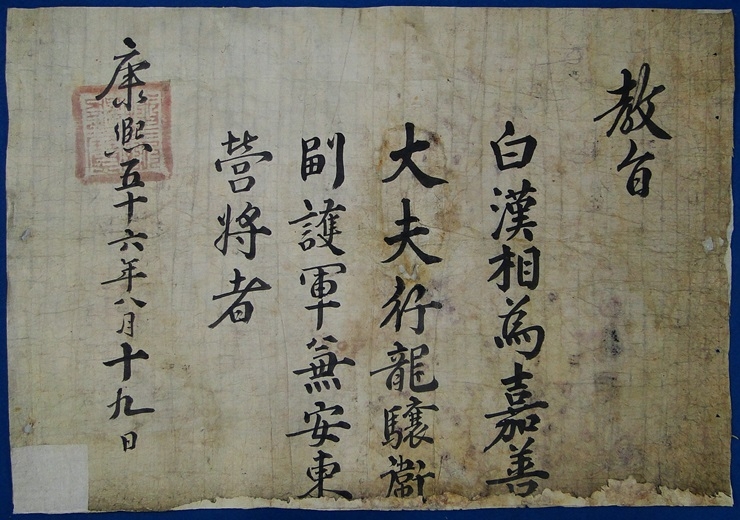 敎旨
白漢相為嘉善
大夫行龍驤衛
副護軍兼安東
營將者
康熙五十六年八月十九日